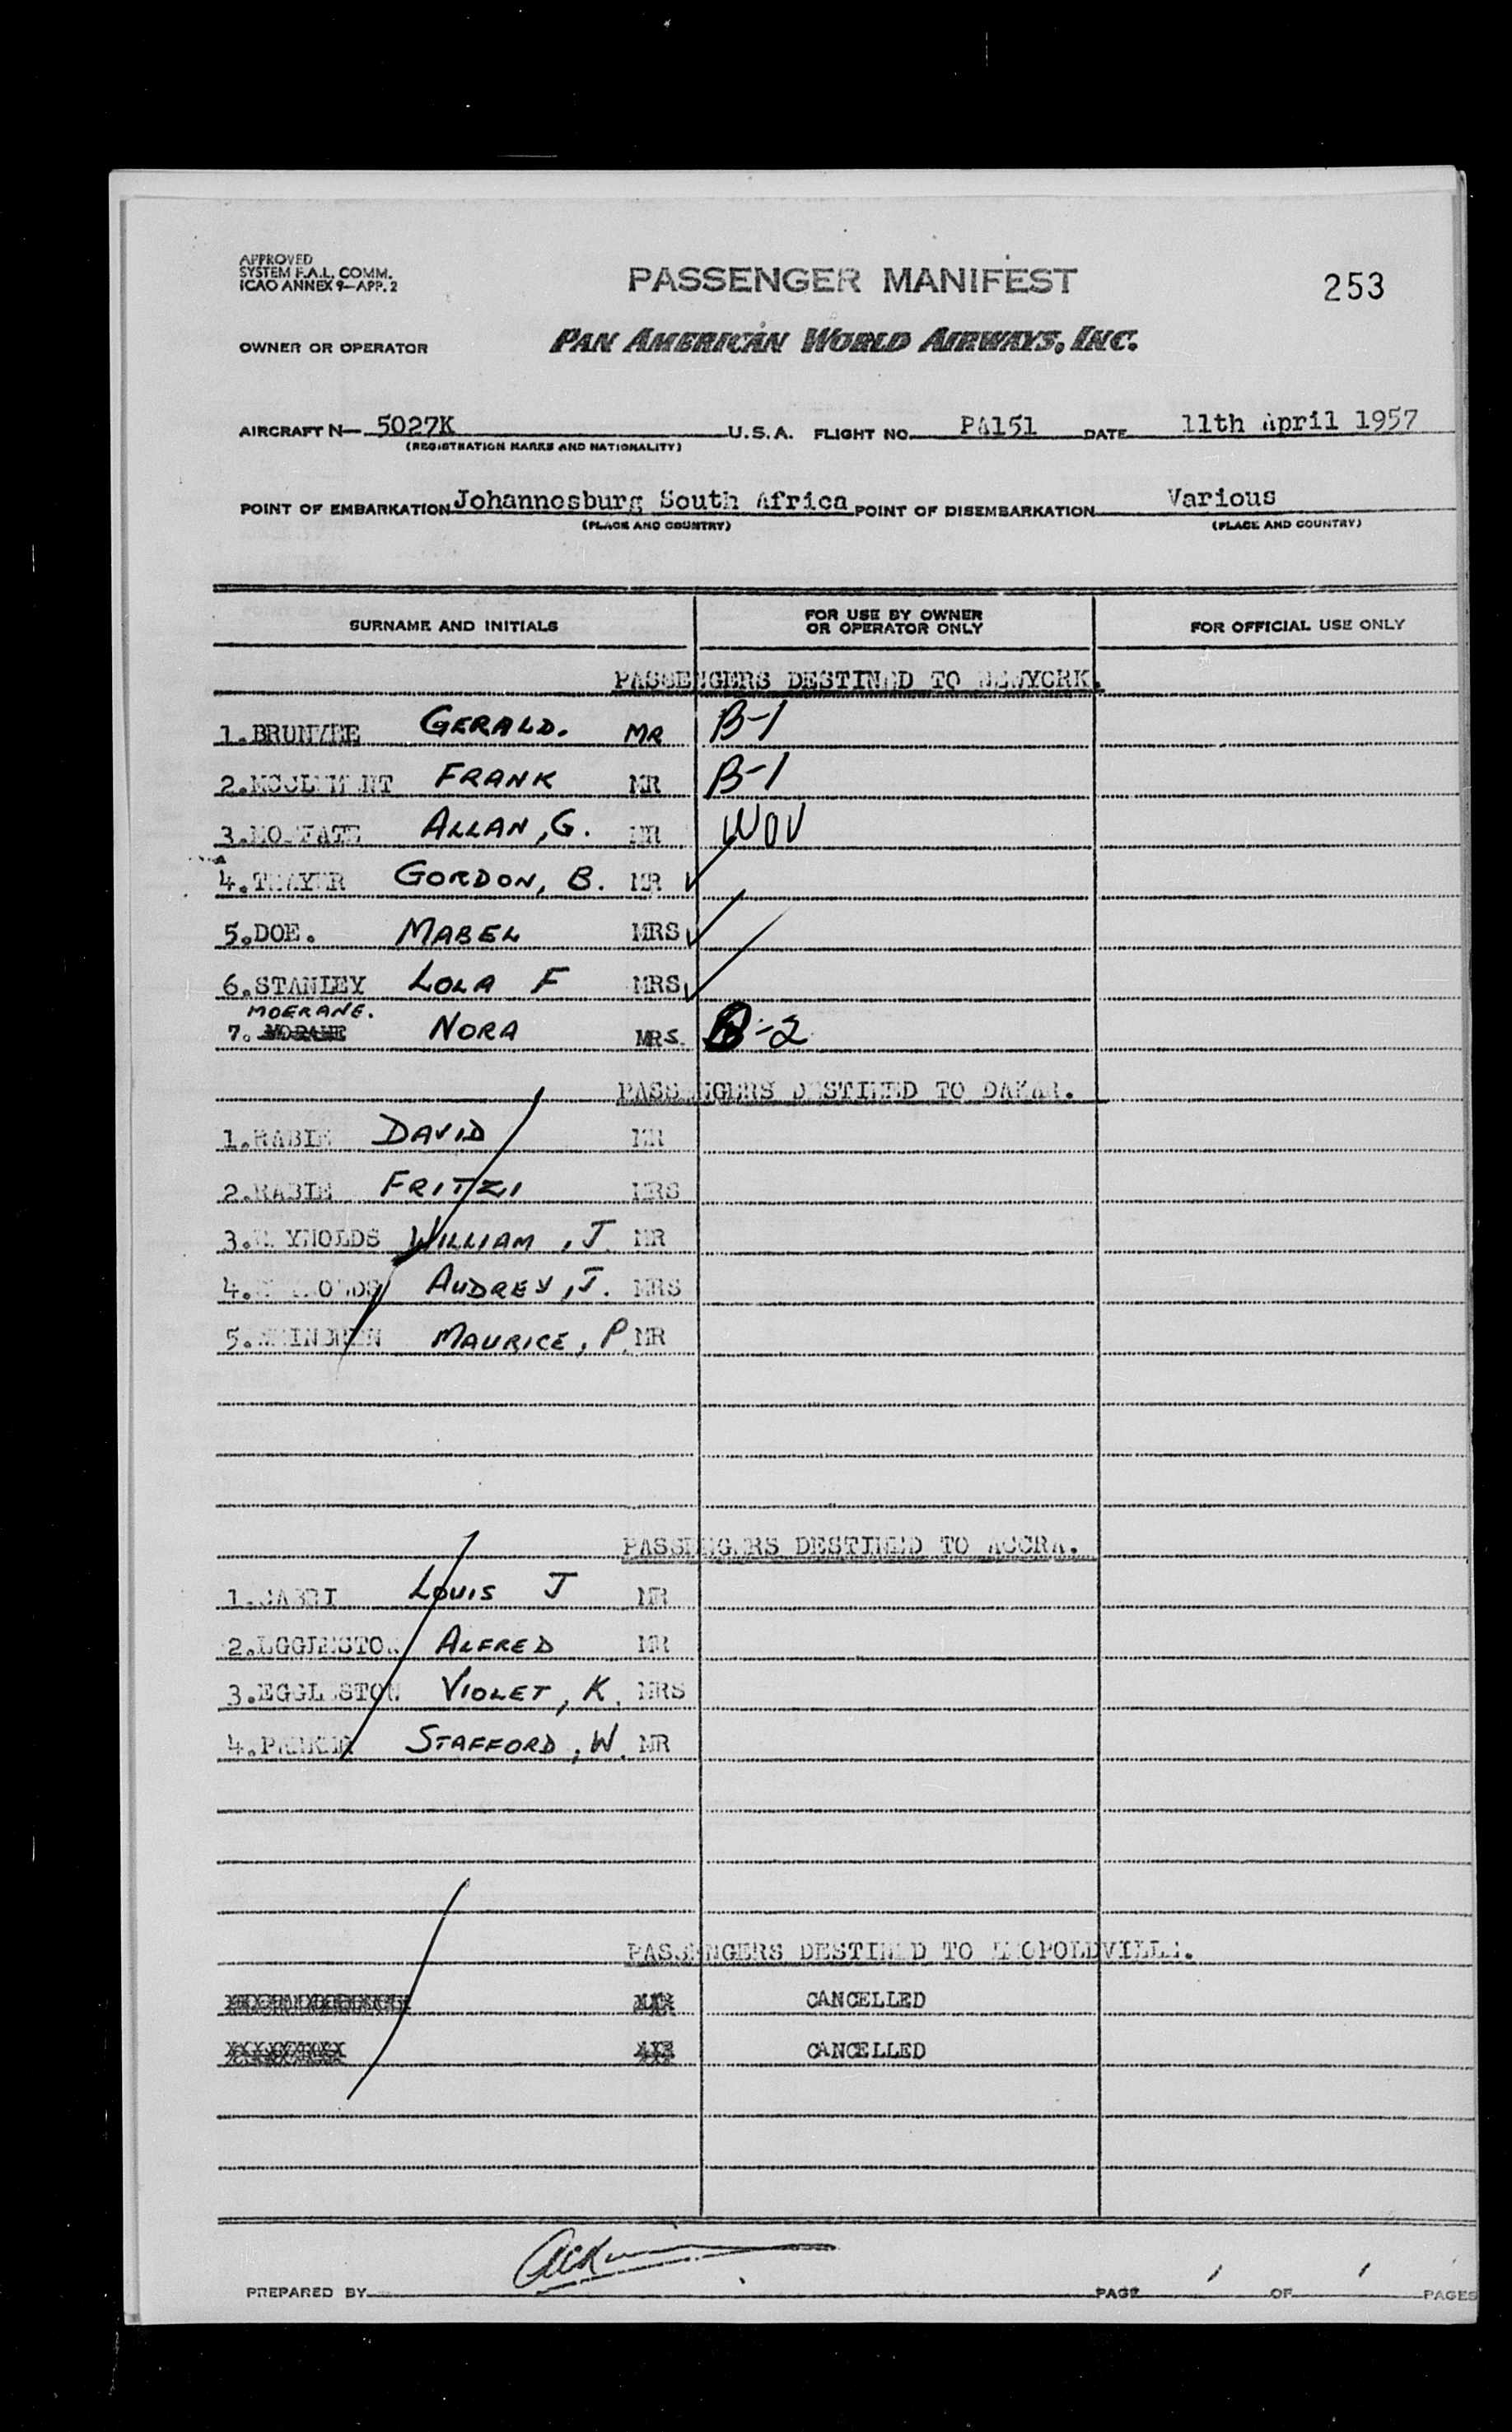 APPROVED
SYSTEM F.A.L. COMM.
ICAO ANNEX 9—APP. 2
PASSENGER MANIFEST
253
OWNER OR OPERATOR
PAN AMERICAN WORLD AIRWAYS, INC.
AIRCRAFT N— 5027K U.S.A. FLIGHT NO. PA151 DATE 11th April 1957
(REGISTRATION MARKS AND NATIONALITY)
POINT OF EMBARKATION Johannesburg South Africa POINT OF DISEMBARKATION Various
(PLACE AND COUNTRY) (PLACE AND COUNTRY)
SURNAME AND INITIALS
FOR USE BY OWNER
OR OPERATOR ONLY
FOR OFFICIAL USE ONLY
PASSENGERS DESTINED TO NEWYORK.
1. GERALD. MR B-1
2. FRANK MR B-1
3. ALLAN, G. MR
4.THAYER GORDON, B. MR
5.DOE. MABEL MRS
6.STANLEY LOLA F MRS
MOERANE.
7. NORA MRS. B-2
PASSENGERS DESTINED TO DAKAR.
1.RABIE DAVID MR
2.RABIE FRITZI MRS
3.REYNOLDS WILLIAM, J. MR
4.REYNOLDS AUDREY, J. MRS
5. MAURICE, P. MR
PASSENGERS DESTINED TO ACCRA.
1. LOUIS J MR
2.EGGLESTON ALFRED MR
3.EGGLESTON VIOLET, K. MRS
4.PARKER STAFFORD, W. MR
PASSENGERS DESTINED TO LEOPOLDVILLE.
CANCELLED
CANCELLED
PREPARED BY PAGE 1 OF 1 PAGES